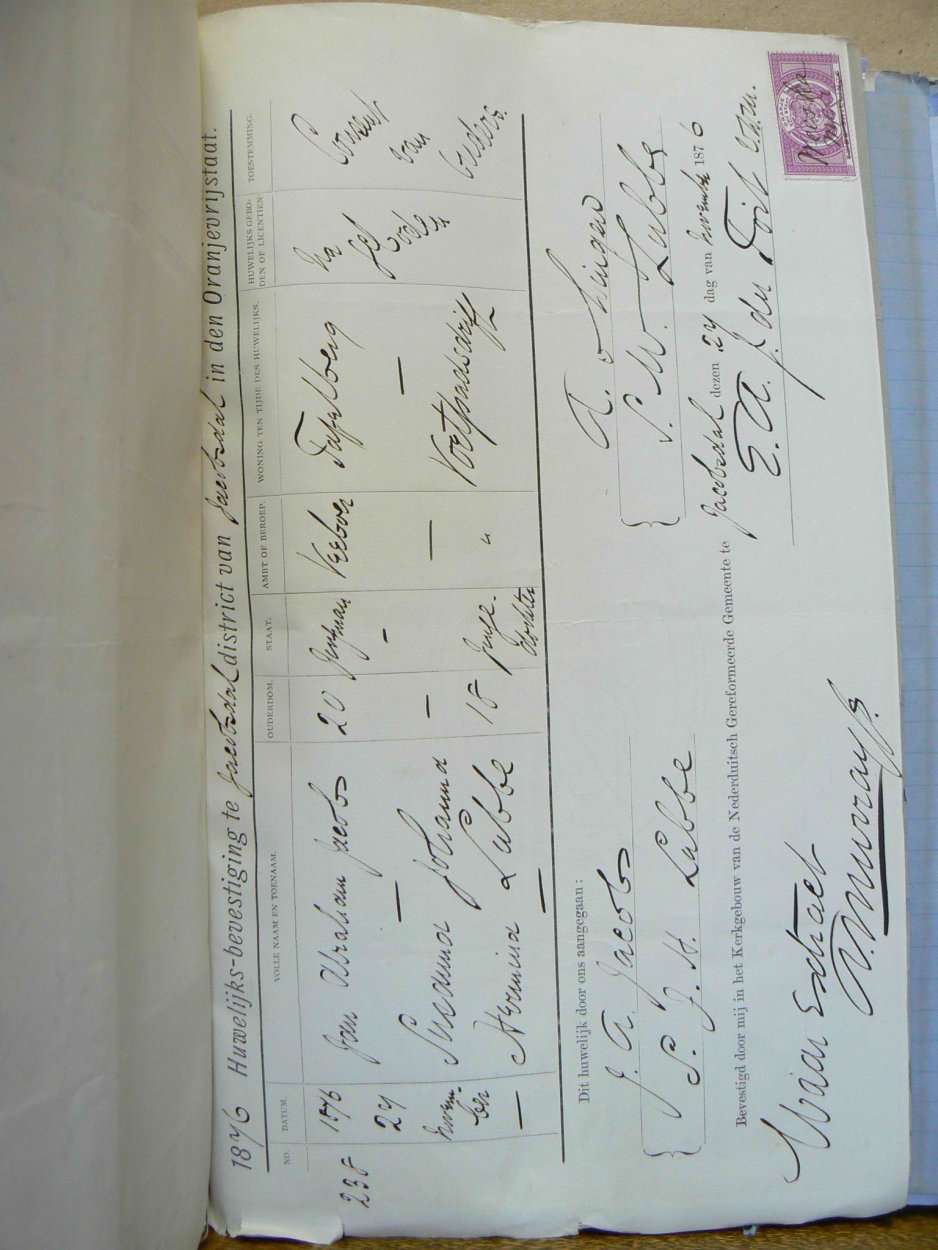 1876 Huwelijks-bevestiging te Jacobsdal district van Jacobsdal in den Oranjevrijstaat.
NO. DATUM. VOLLE NAAM EN TOENAAM. OUDERDOM. STAAT. AMBT OF BEROEP. WONING TEN TIJDE DES HUWELIJKS. HUWELIJKS GEBODEN OF LICENTIEN TOESTEMMING.
238 1876 Jan Abraham Jacobs 20 Jongman Veeboer Tafelberg Na Consent
24 — — — 3 van
Susanna Johanna — — ouders
ber Hermina Lubbe 18 Jonge " 
— — dochter
Dit huwelijk door ons aangegaan:
J. A. Jacobs
S. J. H. Lubbe
A.
S. W. Lubbe
Bevestigd door mij in het Kerkgebouw van de Nederduitsch Gereformeerde Gemeente te Jacobsdal dezen 24 dag van November 1876
Waar Extract